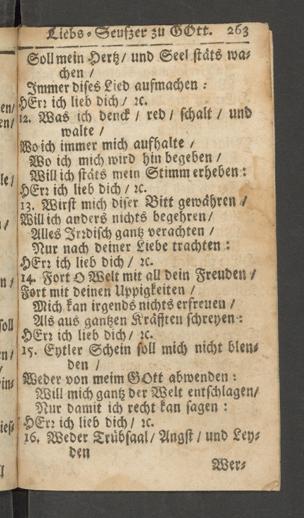 Liebs-Seufzer zu GOtt. 263
Soll mein Hertz/ und Seel stäts wa-
chen /
Immer dises Lied aufmachen :
HErz ich lieb dich / ꝛc.
12. Was ich denck / red / schalt / und
walte /
Wo ich immer mich aufhalte /
Wo ich mich wird hin begeben /
Will ich stäts mein Stimm erheben :
HErz ich lieb dich / ꝛc.
13. Wirst mich diser Bitt gewähren /
Will ich anders nichts begehren /
Alles Irrdisch gantz verachten /
Nur nach deiner Liebe trachten :
HErz ich lieb dich / ꝛc.
14. Fort O Welt mit all dein Freuden /
Fort mit deinen Uppigkeiten /
Mich kan irgends nichts erfreuen /
Als aus gantzen Kräfften schreyen :
HErz ich lieb dich / ꝛc.
15. Eytler Schein soll mich nicht blen-
den /
Weder von meim GOtt abwenden :
Will mich gantz der Welt entschlagen/
Nur damit ich recht kan sagen :
HErz ich lieb dich / ꝛc.
16. Weder Trübsaal / Angst / und Ley-
den
Wer-